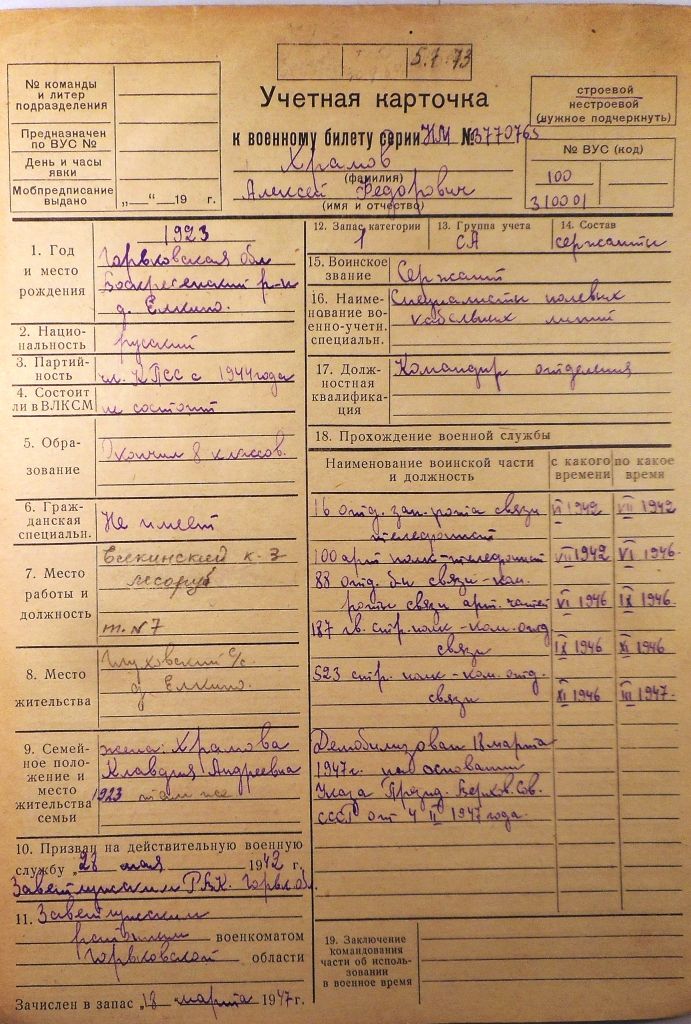 5.1.73
№ команды
и литер
подразделения
Предназначен
по ВУС №
День и часы
явки
Мобпредписание
выдано
„—“—19 г.
Учетная карточка
к военному билету серии НМ № 3770765
Храмов
(фамилия)
Алексей Федорович
(имя и отчество)
строевой
нестроевой
(нужное подчеркнуть)
№ ВУС (код)
100
310001
1. Год
и место
рождения
1923
Горьковская обл
Воскресенский р-н
д. Елкино.
2. Нацио-
нальность
русский
3. Партий-
ность
чл. КПСС с 1944 года
4. Состоит
ли в ВЛКСМ
не состоит
5. Обра-
зование
Окончил 8 классов.
6. Граж-
данская
специальн.
Не имеет
7. Место
работы и
должность
к-з
лесоруб
т. №7
8. Место
жительства
Глуховский с/с.
д. Елкино.
9. Семей-
ное поло-
жение и
место
жительства
семьи
жена: Храмова
Клавдия Андреевна
1923 там же
10. Призван на действительную военную
службу „28 мая 1942 г.
Заветлужским РВК. Горьк. обл.
11. Заветлужским
районным военкоматом
Горьковской области
Зачислен в запас „18 марта 1947 г.
12. Запас категории
1
13. Группа учета
СА
14. Состав
сержанты
15. Воинское
звание
Сержант
16. Наиме-
нование во-
енно-учетн.
специальн.
Специалисты полевых
кабельных линий
17. Долж-
ностная
квалифика-
ция
Командир отделения
18. Прохождение военной службы
Наименование воинской части
и должность
с какого
времени
по какое
время
16 отд. зап. рота связи VI 1942 VII 1942
телефонист
100 арт полк-телефонист VII 1942 VI 1946
88 отд. б-н связи-ком.
роты связи арт. частей VI 1946 IX 1946
187 гв. стр. полк-ком. отд
связи IX 1946 XI 1946
523 стр. полк-ком. отд.
связи XI 1946 III 1947
Демобилизован 18 марта
1947г. на основании
Указа Презид. Верхов. Сов.
СССР от 4 II 1947 года.
19. Заключение
командования
части об исполь-
зовании
в военное время